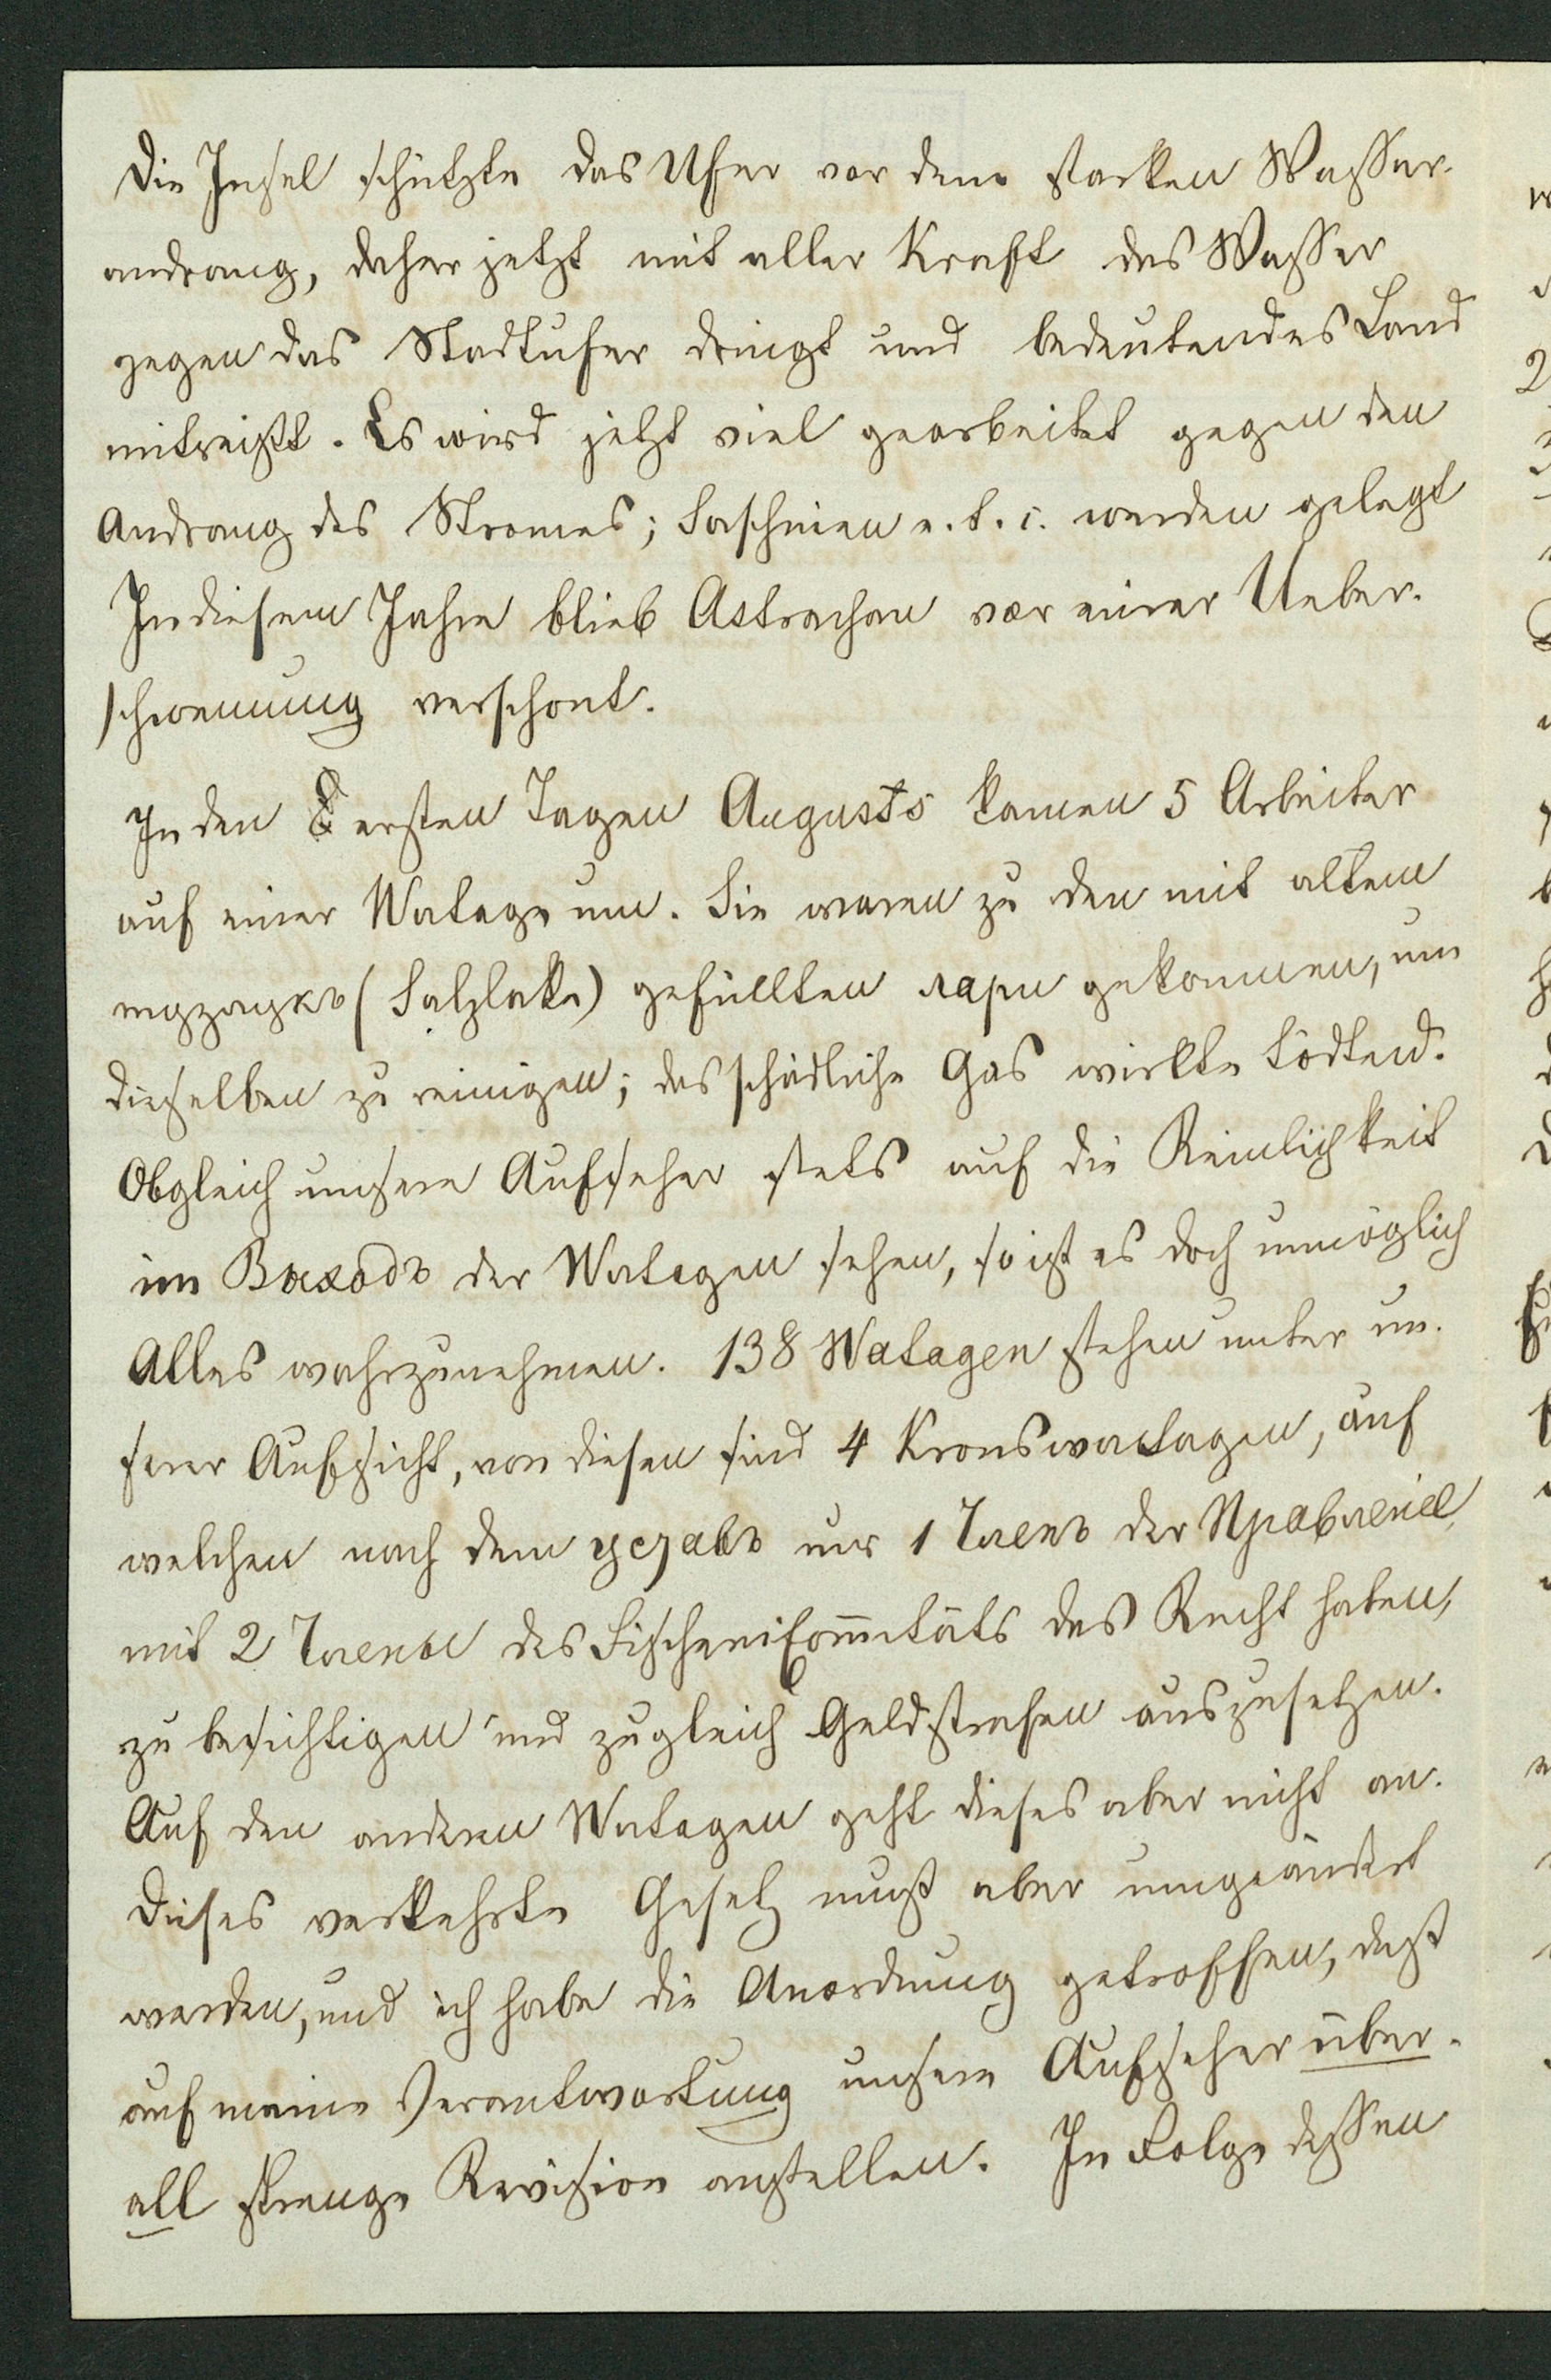 Die Insel schützte das Ufer vor dem starken Wasser-
andrang, daher jetzt mit aller Kraft das Wasser
gegen das Stadtufer dringt und bedeutendes Land
mitreißt. Es wird jetzt viel gearbeitet gegen den
Andrang des Stromes; Faschinen e. t. c. werden gelegt
In diesem Jahre blieb Astrachan vor einer Ueber-
schwemung verschont.
In den ersten Tagen Augusts kamen 5 Arbeiter
auf einer Watage um. Sie waren zu den mit altem
тузлукъ (Salzlake) gefüllten лари gekommen, um
dieselben zu reinigen; das schädliche Gas wirkte tödtend.
Obgleich unsere Aufseher stets auf die Reinlichkeit
im Выходъ der Watagen sehen, so ist es doch unmöglich
Alles wahrzunehmen. 138 Watagen stehen unter un-
serer Aufsicht, von diesen sind 4 Kronswatagen, auf
welchen nach dem уставъ nur 1 Членъ der Правленіе
mit 2 Члены des Fischereicomitäts das Recht haben,
zu besichtigen und zugleich Geldstrafen auszusetzen.
Auf den anderen Watagen geht dieses aber nicht an.
Dieses verkehrte Gesetz muß aber umgeändert
werden, und ich habe die Anordnung getroffen, daß
auf meine Verantwortung unsere Aufseher über-
all strenge Revision anstellen. In Folge dessen